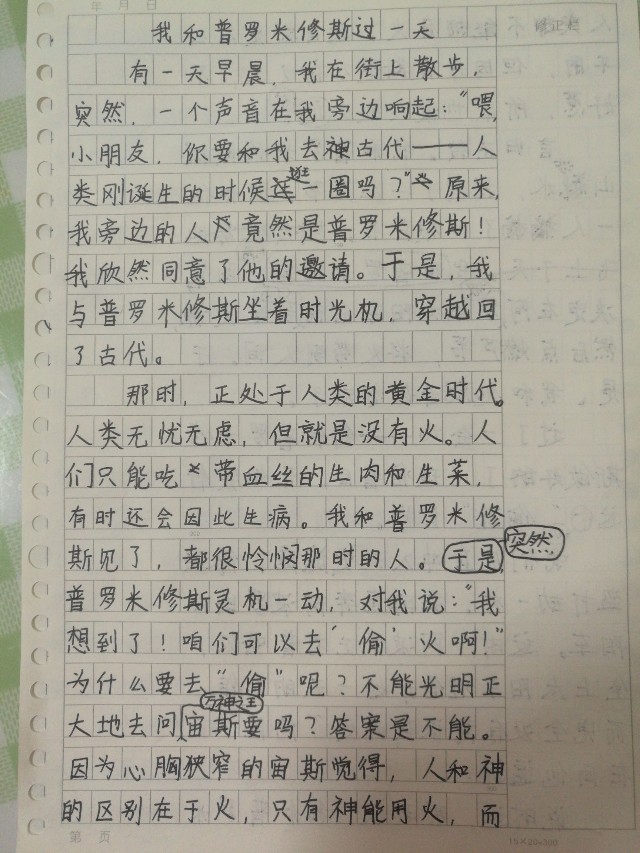 年 月 日
修正栏
我和普罗米修斯过一天
有一天早晨，我在街上散步，
突然，一个声音在我旁边响起：“喂，
小朋友，你要和我去神古代——人
逛
类刚诞生的时候 一圈吗？” 原来，
我旁边的人 竟然是普罗米修斯！
我欣然同意了他的邀请。于是，我
与普罗米修斯坐着时光机，穿越回
了古代。
那时，正处于人类的黄金时代。
人类无忧无虑，但就是没有火。人
们只能吃 带血丝的生肉和生菜，
有时还会因此生病。我和普罗米修
斯见了，都很怜悯那时的人。于是，突然
普罗米修斯灵机一动，对我说：“我
想到了！咱们可以去‘偷’火啊！”
为什么要去“偷”呢？不能光明正
万神之王
大地去问宙斯要吗？答案是不能。
因为心胸狭窄的宙斯觉得，人和神
的区别在于火，只有神能用火，而
第 页
16×20=300